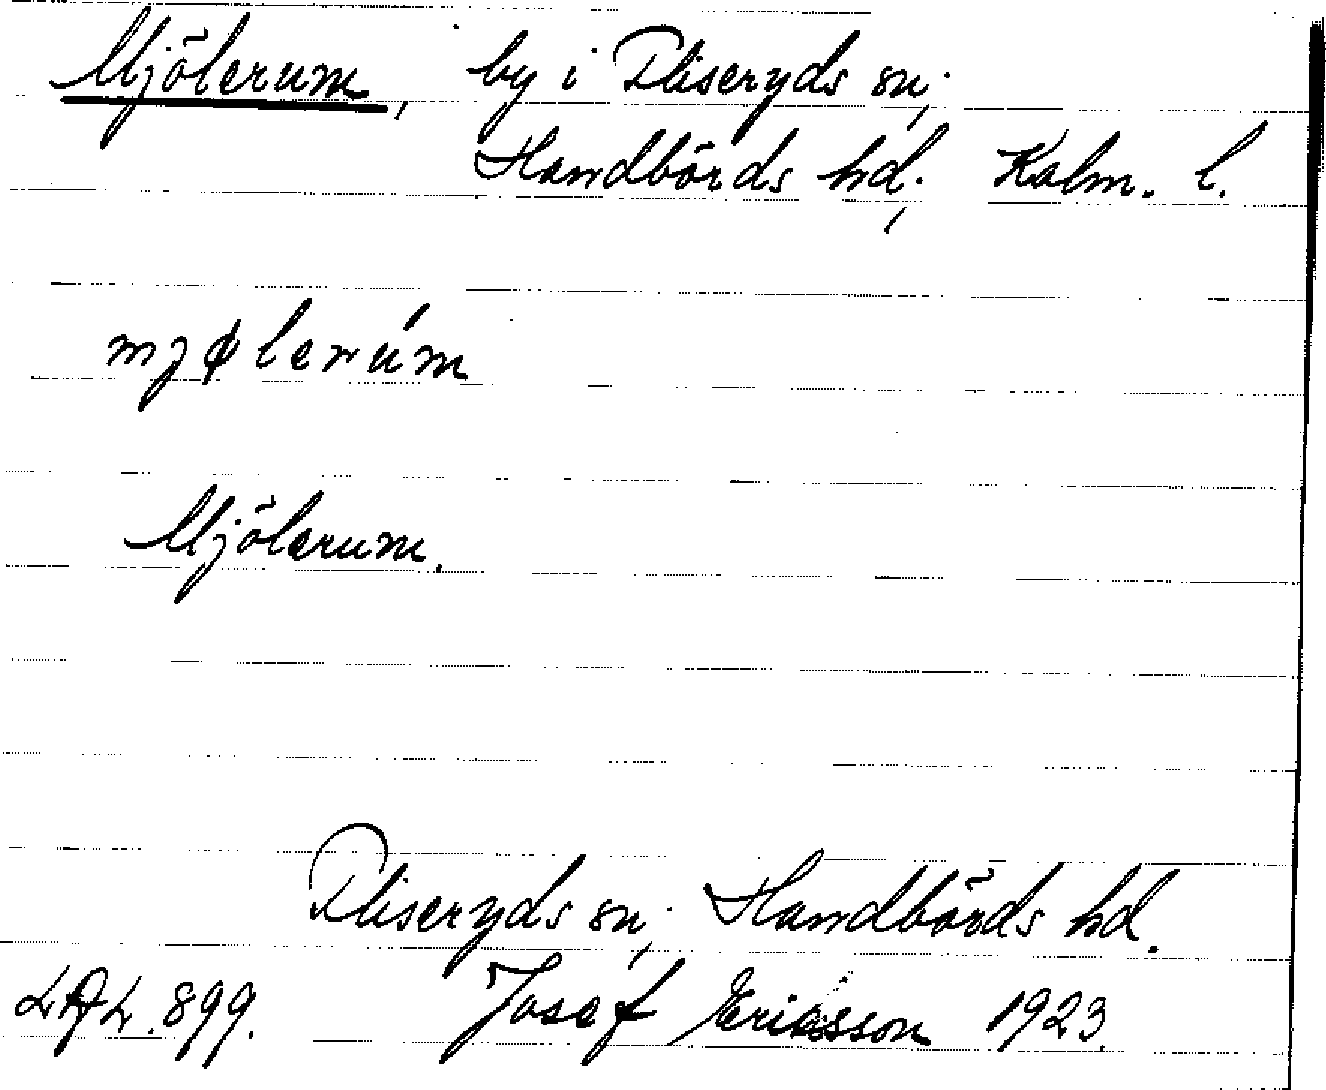 Mjölerum, by i Fliseryds sn,
Handbörds hd, Kalm. l.
mjølerúm
Mjölerum.
Fliseryds sn, Handbörds hd.
Josef Eriksson 1923.
899.